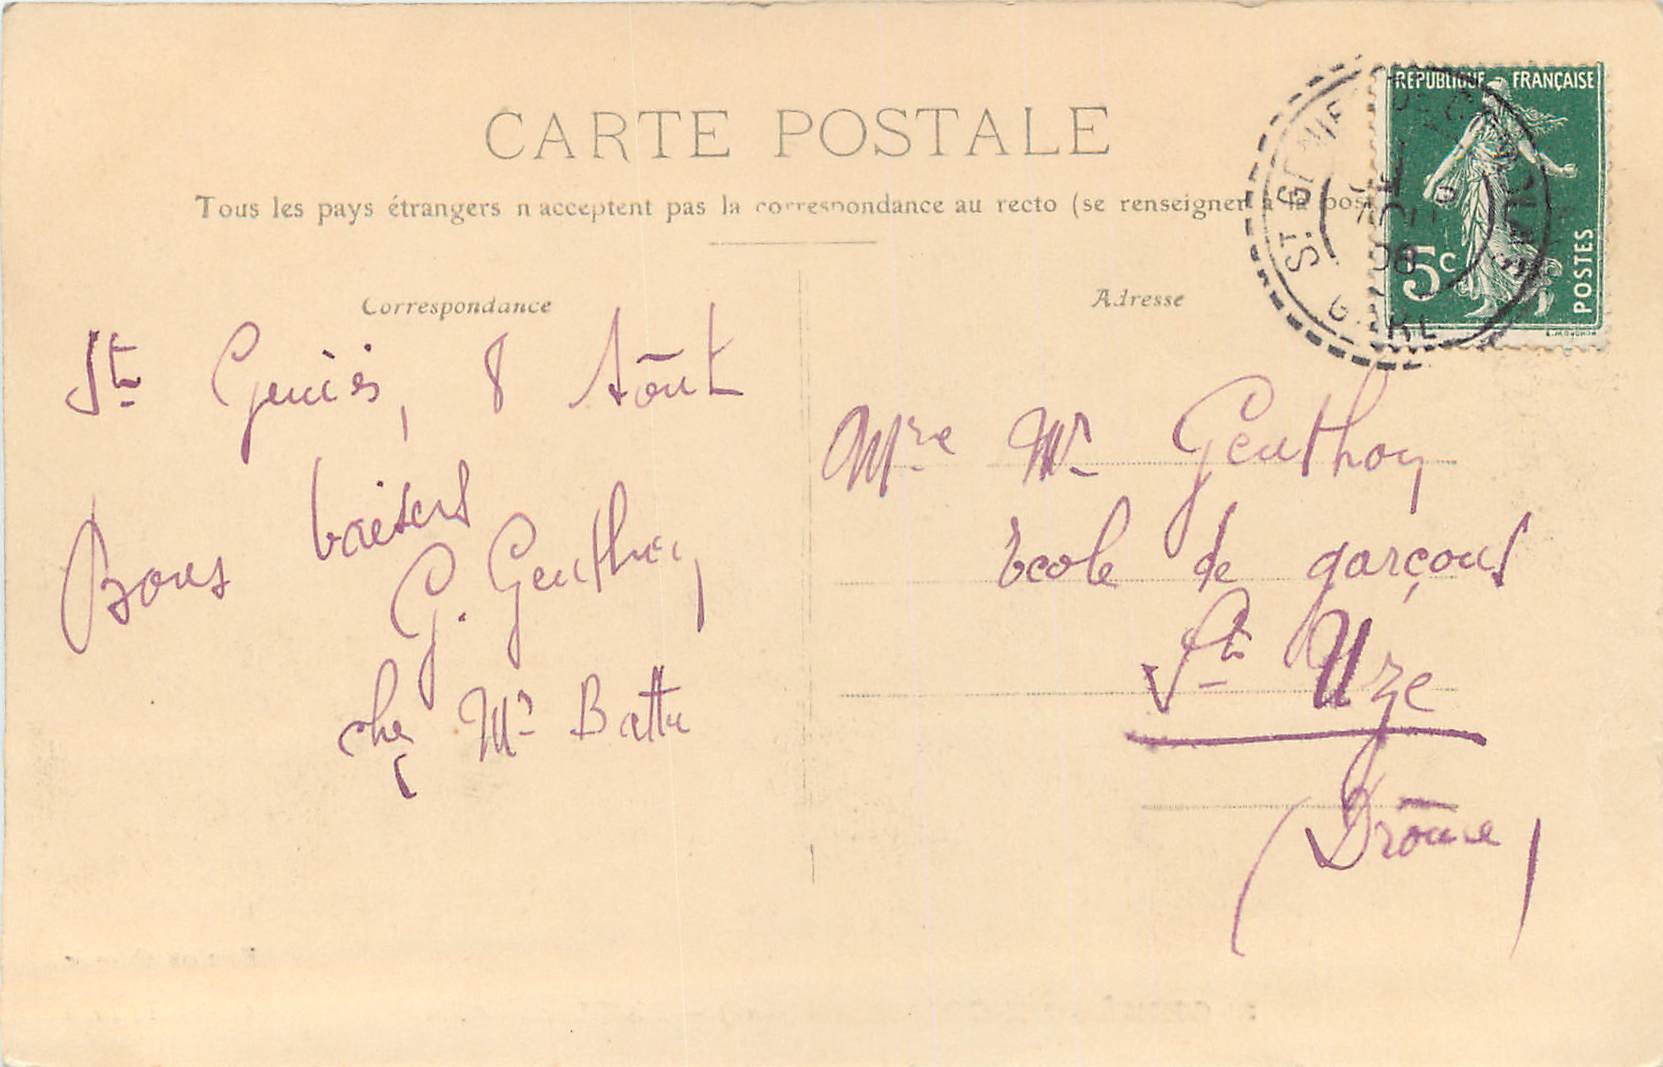 CARTE POSTALE
Tous les pays étrangers n'acceptent pas la correspondance au recto (se renseigner à la poste)
Correspondance
St Geniès, 8 Août
Bons baisers
G. Genthon
chez Mr Battu
Adresse
Mr Genthon
École de garçons
St Uze
(Drôme)
RÉPUBLIQUE FRANÇAISE
5c
POSTES
ST GENIE
GARE
08